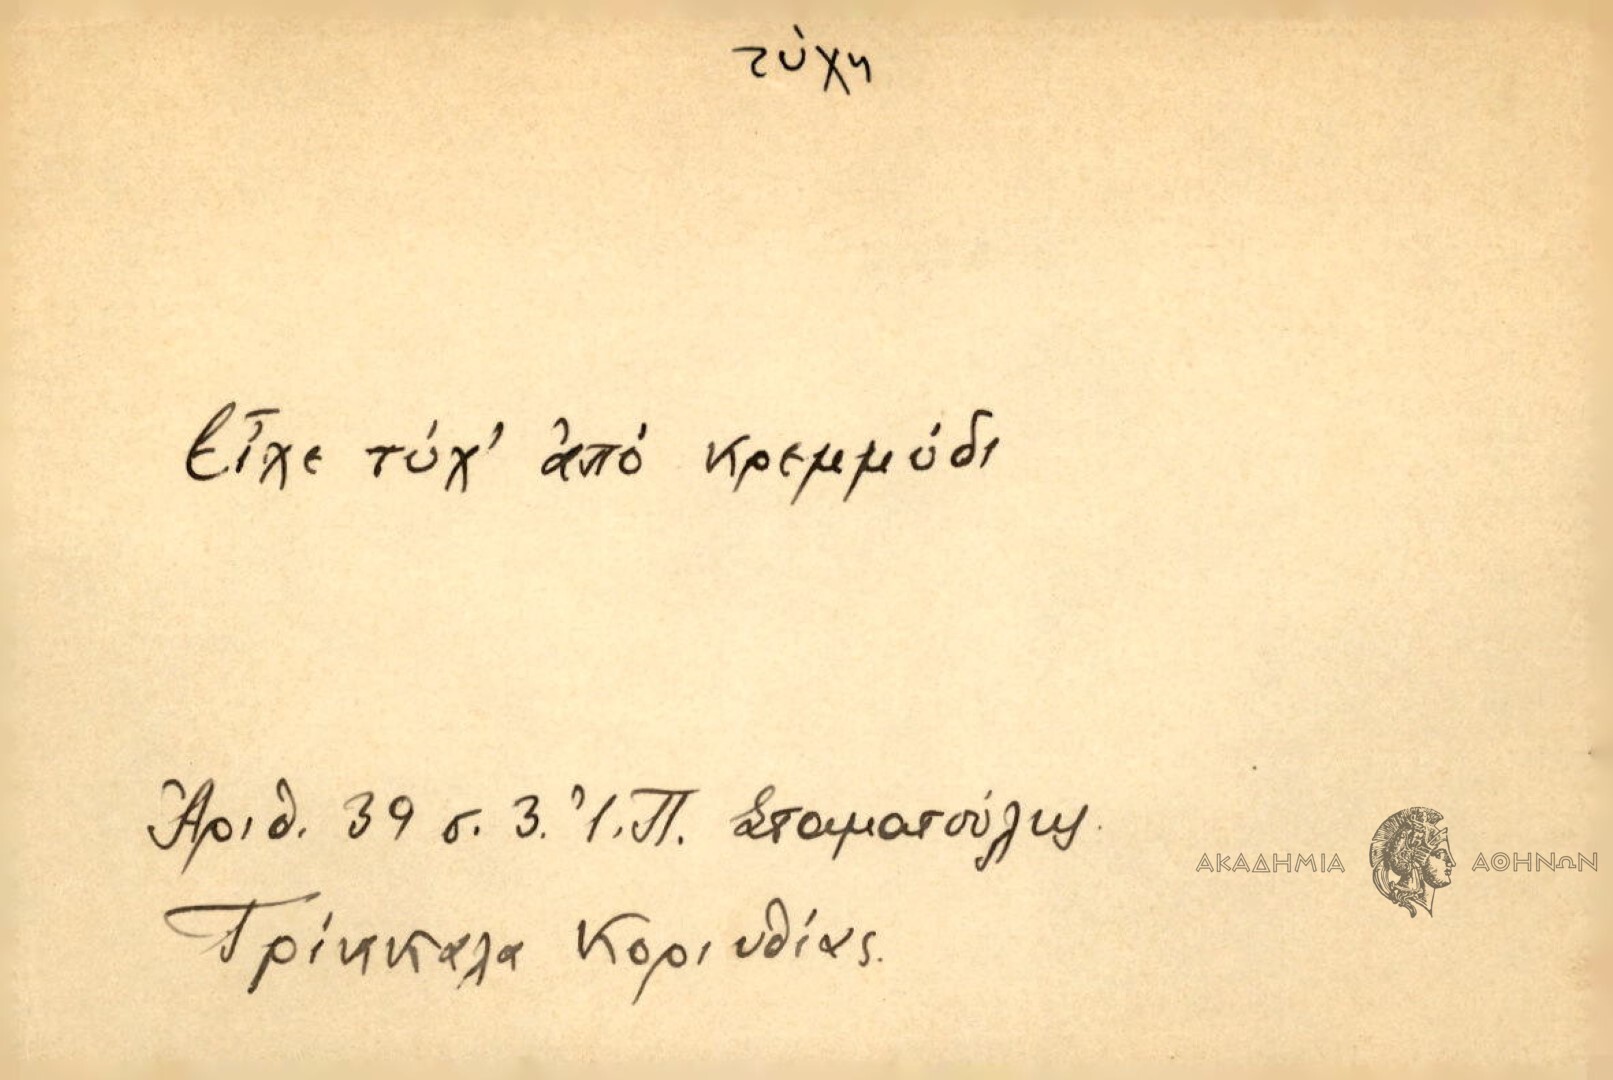 τύχη
Εἶχε τύχ' ἀπό κρεμμύδι
Ἀριθ. 39 σ. 3. Ἰ. Π. Σταματούλης.
ΑΚΑΔΗΜΙΑ ΑΘΗΝΩΝ
Τρίκκαλα Κορινθίας.